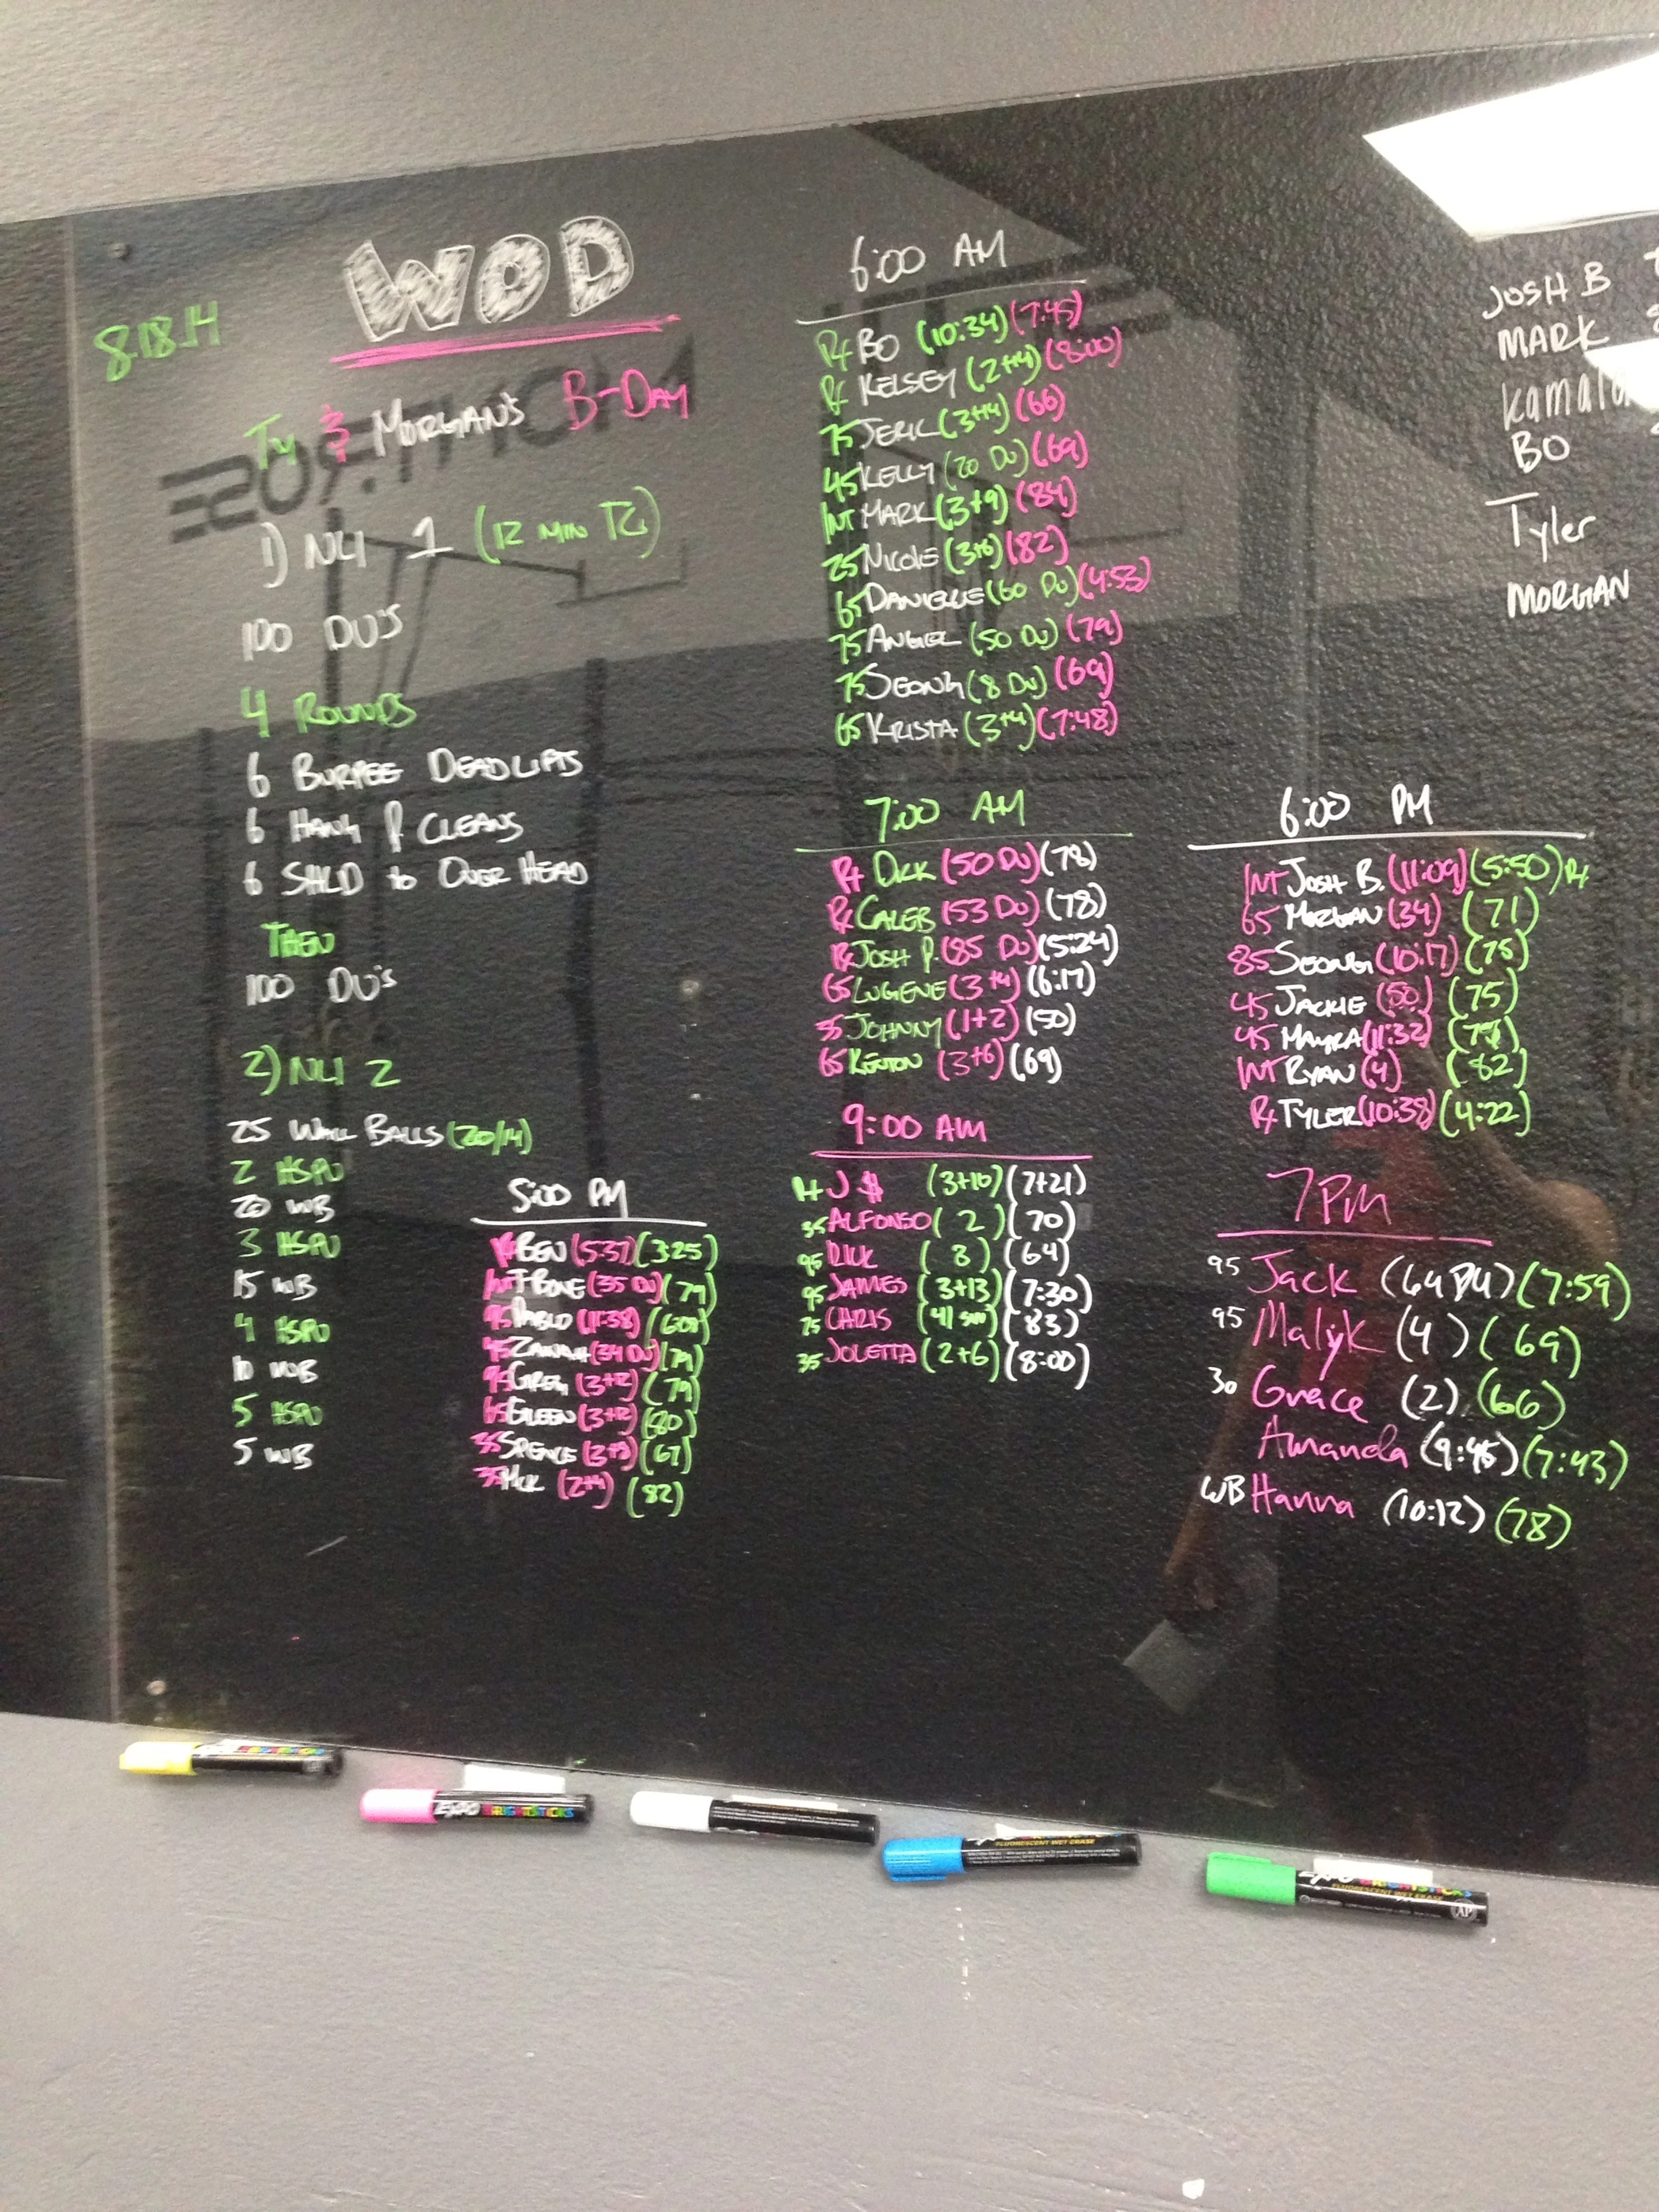 8.18.14
WOD
Ty & MORGAN'S B-DAY
1) NLI 1 (12 MIN TC)
100 DU'S
4 ROUNDS
6 BURPEE DEADLIFTS
6 HANG P. CLEANS
6 SHLD to OVER HEAD
THEN
100 DU'S
2) NLI 2
25 WALL BALLS (20/14)
2 HSPU
20 WB
3 HSPU
15 WB
4 HSPU
10 WB
5 HSPU
5 WB
5:00 PM
BEN (5:37) (3:25)
T-BONE (35 DU) (79)
PABLO (11:38)
(34 DU) (79)
GREG (3+12) (79)
65 GREEN (3+12) (80)
35 SPENCE (2+9) (67)
35 (2+4) (82)
6:00 AM
RX BO (10:34) (7:45)
RX KELSEY (2+4) (8:00)
75 JERIC (3+14) (66)
45 KELLY (20 DU) (69)
INT MARK (3+9) (84)
25 NICOLE (3+6) (82)
65 DANIELLE (60 DU) (4:53)
75 ANGEL (50 DU) (79)
75 SEONG (8 DU) (69)
65 KRISTA (3+4) (7:48)
7:00 AM
RX DICK (50 DU) (78)
RX CALEB (53 DU) (78)
RX JOSH P. (85 DU) (5:24)
65 LUGENE (3+4) (6:17)
35 JOHNNY (1+2) (50)
65 KENTON (3+6) (69)
9:00 AM
RX J $ (3+10) (7+21)
35 ALFONSO (2) (70)
95 DICK (8) (64)
95 JAMES (3+13) (7:30)
75 CHRIS (41 SU) (83)
35 JOLETTA (2+6) (8:00)
6:00 PM
INT JOSH B. (11:09) (5:50) RX
65 MORGAN (34) (71)
85 SEONG (10:17) (75)
45 JACKIE (50) (75)
45 MAYRA (11:32)
INT RYAN (4) (82)
RX TYLER (10:38) (4:22)
7 PM
95 Jack (64 DU) (7:59)
95 Malyk (4) (69)
30 Grace (2) (66)
Amanda (9:45) (7:43)
WB Hanna (10:12) (78)
JOSH B
MARK
Kamala
BO
Tyler
MORGAN
EXPO BRIGHTSTICKS
FLUORESCENT WET ERASE
BRIGHTSTICKS
FLUORESCENT WET ERASE
AP